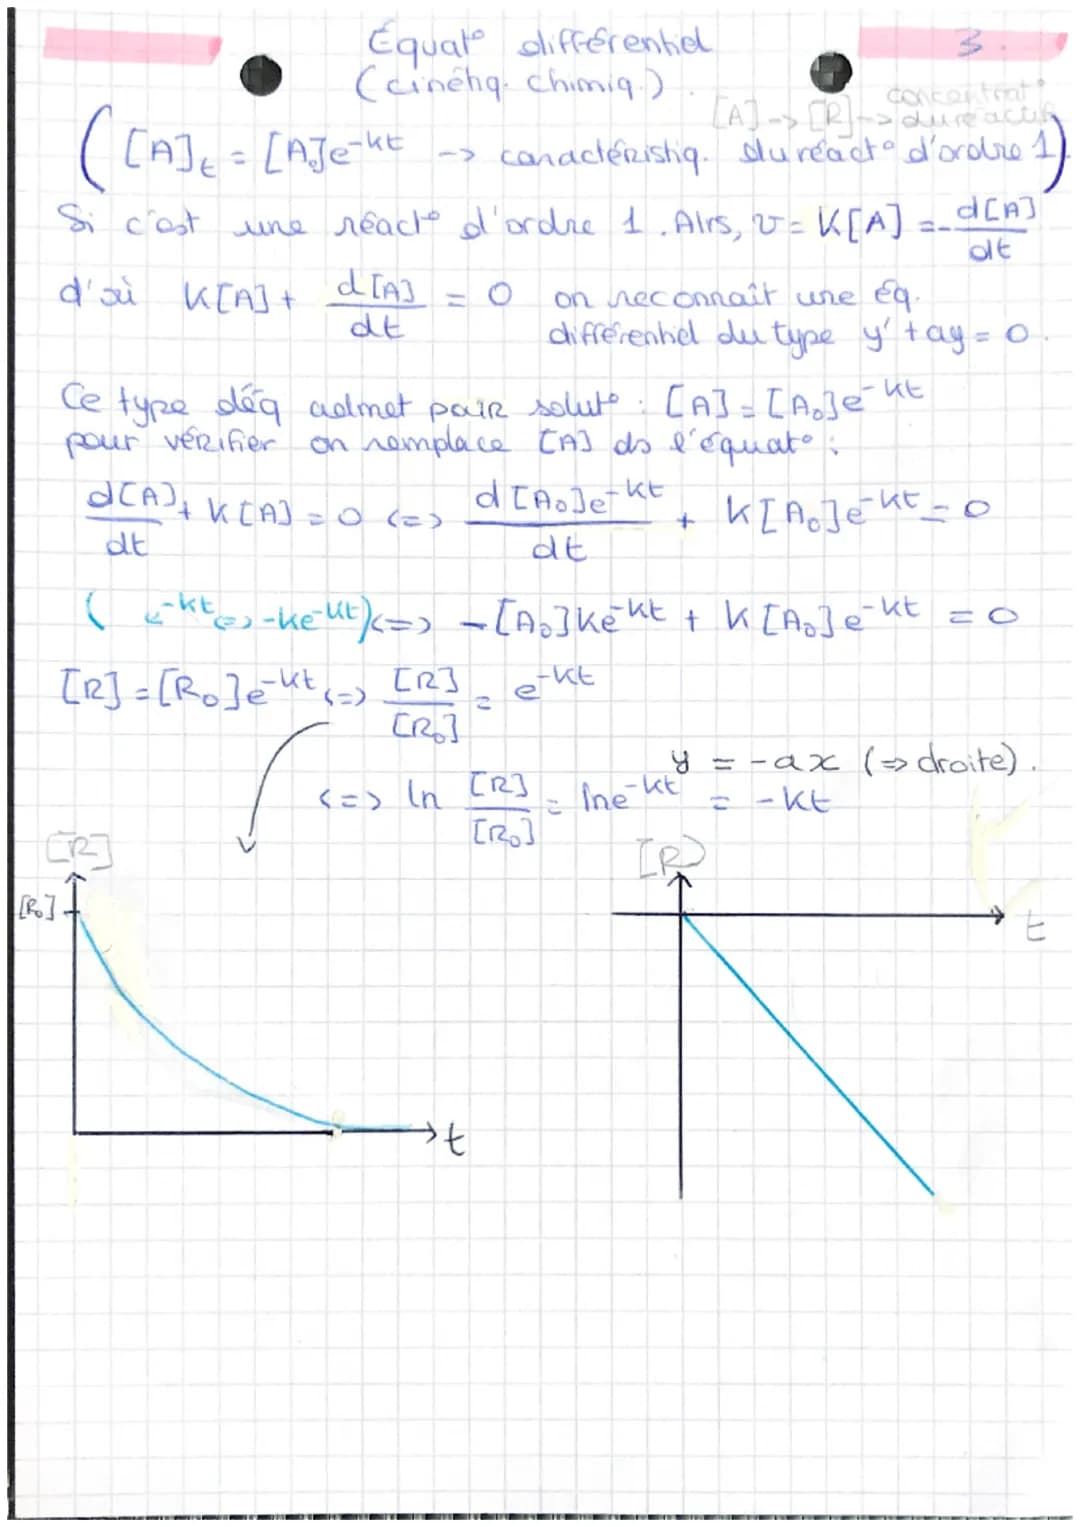 Équat° différentiel
3.
(cinétiq. chimiq.).
[A] -> [R] -> concentrat° du réactif
([A]t = [A₀]e^-kt -> caractéristiq. du réact° d'ordre 1)
Si c'est une réact° d'ordre 1. Alrs, v = K[A] = - d[A]/dt
d'où K[A] + d[A]/dt = 0 on reconnaît une éq.
différentiel du type y' + ay = 0.
Ce type d'éq admet pair solut° : [A] = [A₀]e^-kt
pour vérifier on remplace [A] ds l'équat° :
d[A]/dt + K[A] = 0 <=> d[A₀]e^-kt/dt + K[A₀]e^-kt = 0
(e^-kt <=> -ke^-kt) <=> -[A₀]Ke^-kt + K[A₀]e^-kt = 0
[R] = [R₀]e^-kt <=> [R]/[R₀] = e^-kt
y = -ax (=> droite).
<=> ln [R]/[R₀] = lne^-kt = -Kt
[R]
[R]
[R₀]
t
t